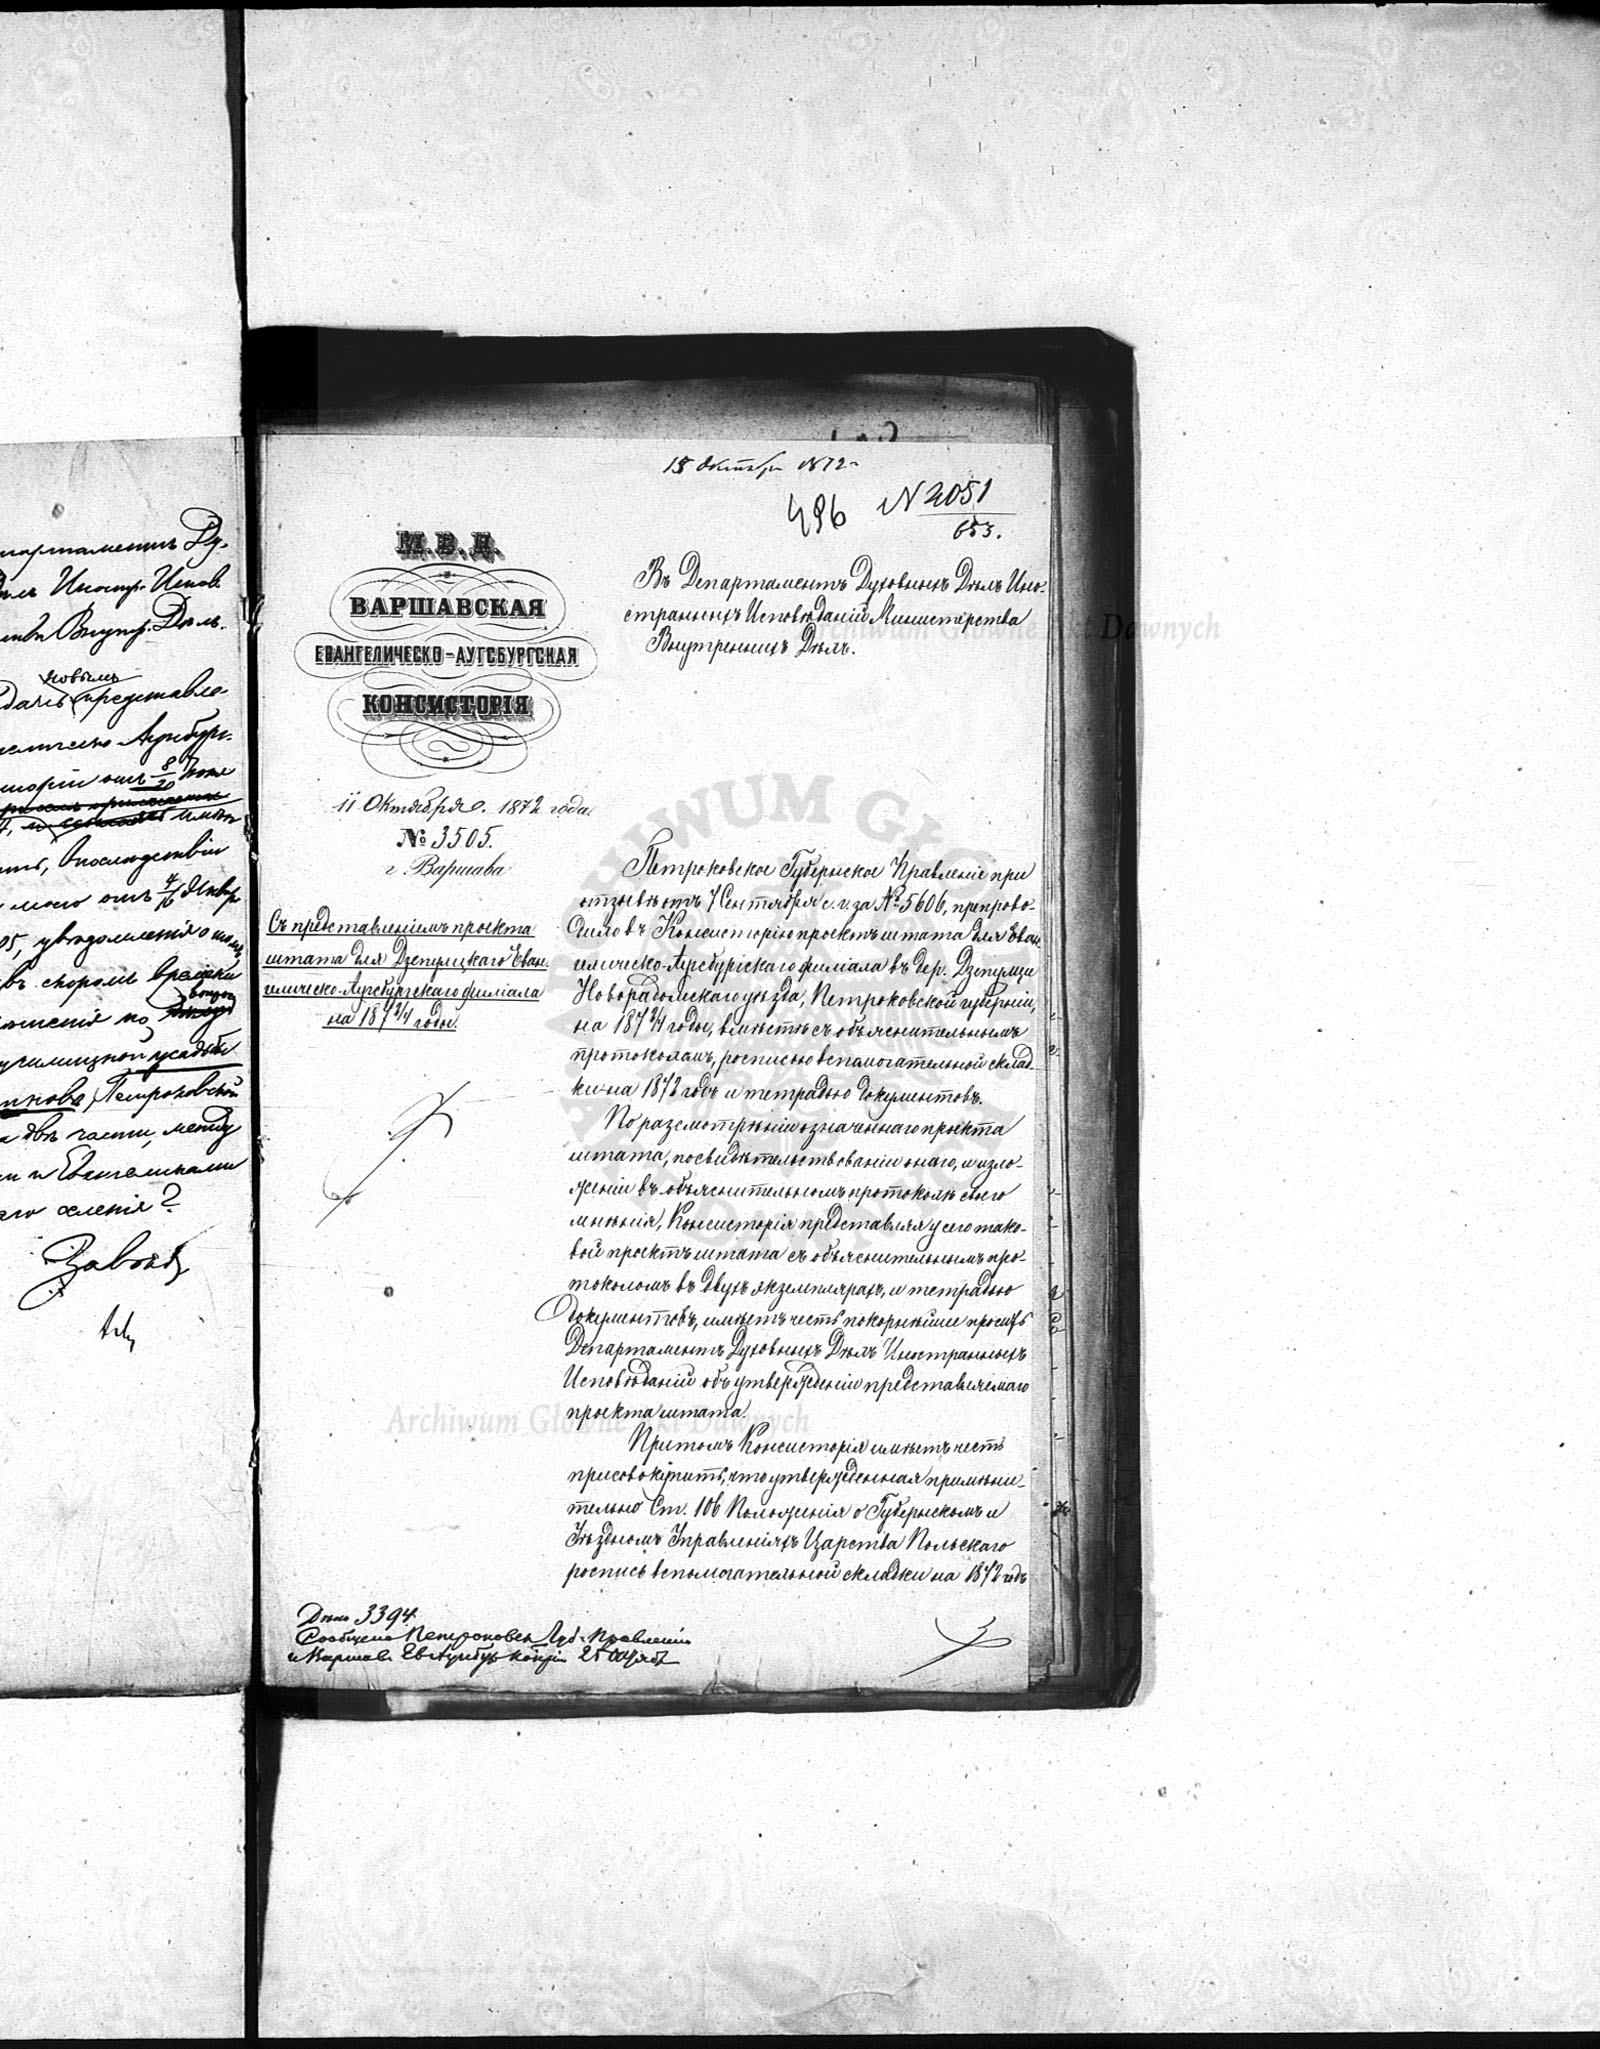 пartаментъ Ду-
Иностр. Испов
Внутр. Дѣлъ.
новымъ
представле-
Аугсбург-
отъ 8/20 Іюня
впослѣдствіи
моего отъ 4/16 Январ
05, увѣдомленія о томъ,
въ скоромъ времени
вопросу
училищной усадьбы
Петроковской
двѣ части, между
и Евангеликами
селенія?
15 Октября 1872 г.
496 N 2051
653.
М. В. Д.
ВАРШАВСКАЯ
ЕВАНГЕЛИЧЕСКО-АУГСБУРГСКАЯ
КОНСИСТОРІЯ
11 Октября. 1872 года.
№ 3505.
г. Варшава
Съ представленіемъ проекта
штата для Дзепулцкаго Еван-
гелическо-Аугсбургскаго филіала
на 1872/4 годы.
Въ Департаментъ Духовныхъ Дѣлъ Ино-
странныхъ Исповѣданій Министерства
Внутреннихъ Дѣлъ.
Петроковское Губернское Правленіе при
отзывѣ отъ 7 Сентября с. г. за № 5606, препрово-
дило въ Консисторію проектъ штата для Еван-
гелическо-Аугсбургскаго филіала въ дер. Дзепулци
Новорадомскаго уѣзда, Петроковской губерніи,
на 1872/4 годы, вмѣстѣ съ объяснительнымъ
протоколомъ, росписью вспомогательной склад-
ки на 1872 годъ и тетрадью документовъ.
По разсмотрѣніи означеннаго проекта
штата, посвидѣтельствованіи онаго, и изло-
женіи въ объяснительномъ протоколѣ своего
мнѣнія, Консисторія представляя у сего тако-
вой проектъ штата съ объяснительнымъ про-
токоломъ въ двухъ экземплярахъ, и тетрадью
документовъ, имѣетъ честь покорнѣйше просить
Департаментъ Духовныхъ Дѣлъ Иностранныхъ
Исповѣданій объ утвержденіи представляемаго
проекта штата.
Притомъ Консисторія имѣетъ честь
присовокупить, что утвержденная примѣни-
тельно Ст. 106 Положенія о Губернскомъ и
Уѣздномъ Управленіяхъ Царства Польскаго
роспись вспомогательной складки на 1872 годъ
Дѣло 3394
Сообщено Петроковск. Губ. Правленію
и Варшав. Ев Аугсбур. Конс. 25 Октября
Archiwum Główne Akt Dawnych
Archiwum Główne Akt Dawnych